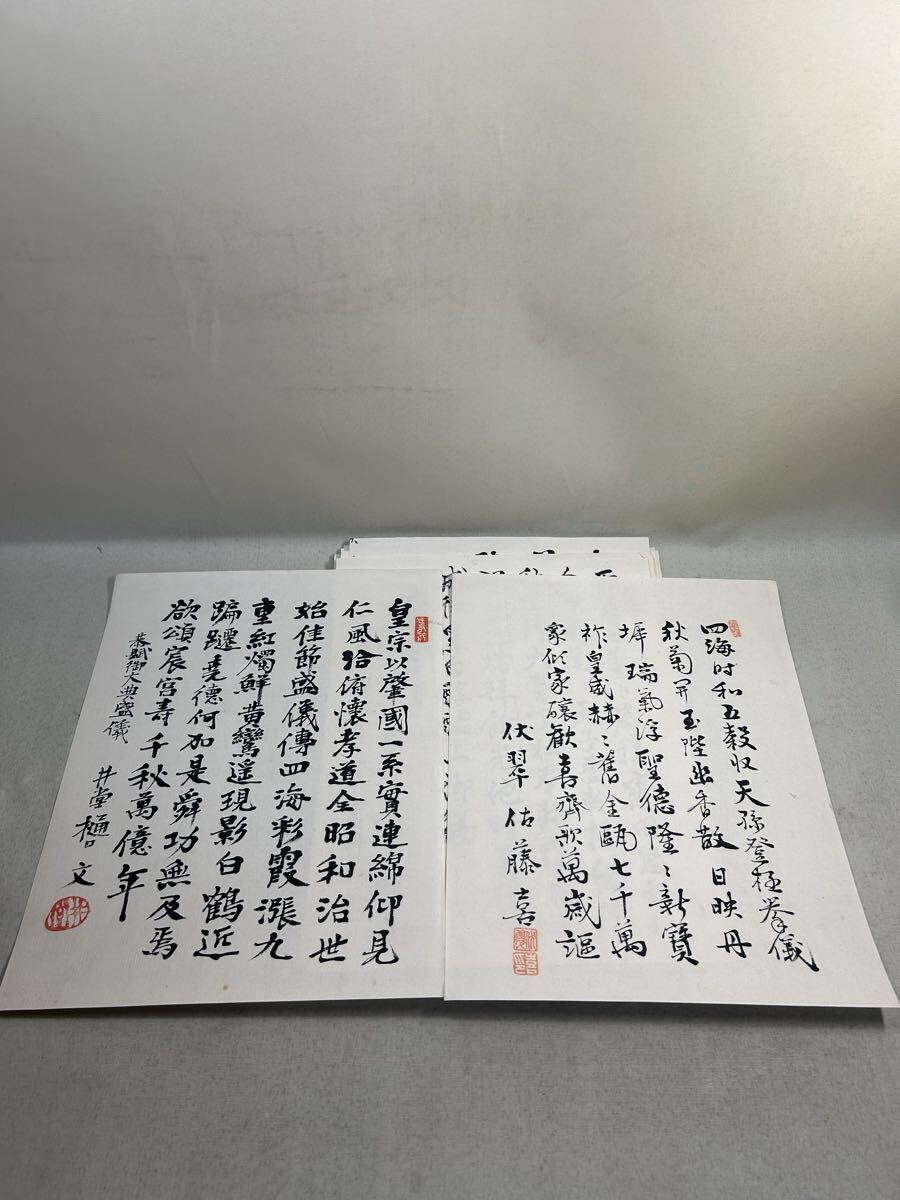 四海时和五穀収天孫登極挙儀
秋菊開玉陛幽香散日映丹
墀瑞氣浮聖德隆〻新寶
祚皇威赫〻舊金甌七千萬
衆傾家釀歡喜齊歌萬歳謳
伏翠佐藤喜
皇宗以肇國一系實連綿仰見
仁風洽俯懷孝道全昭和治世
始佳節盛儀傳四海彩霞漲九
重紅燭鮮黄鸞遥現影白鶴近
蹁躚堯德何加是舜功無及焉
欲頌宸宮壽千秋萬億年
恭賦御大典盛儀
井堂樋口文